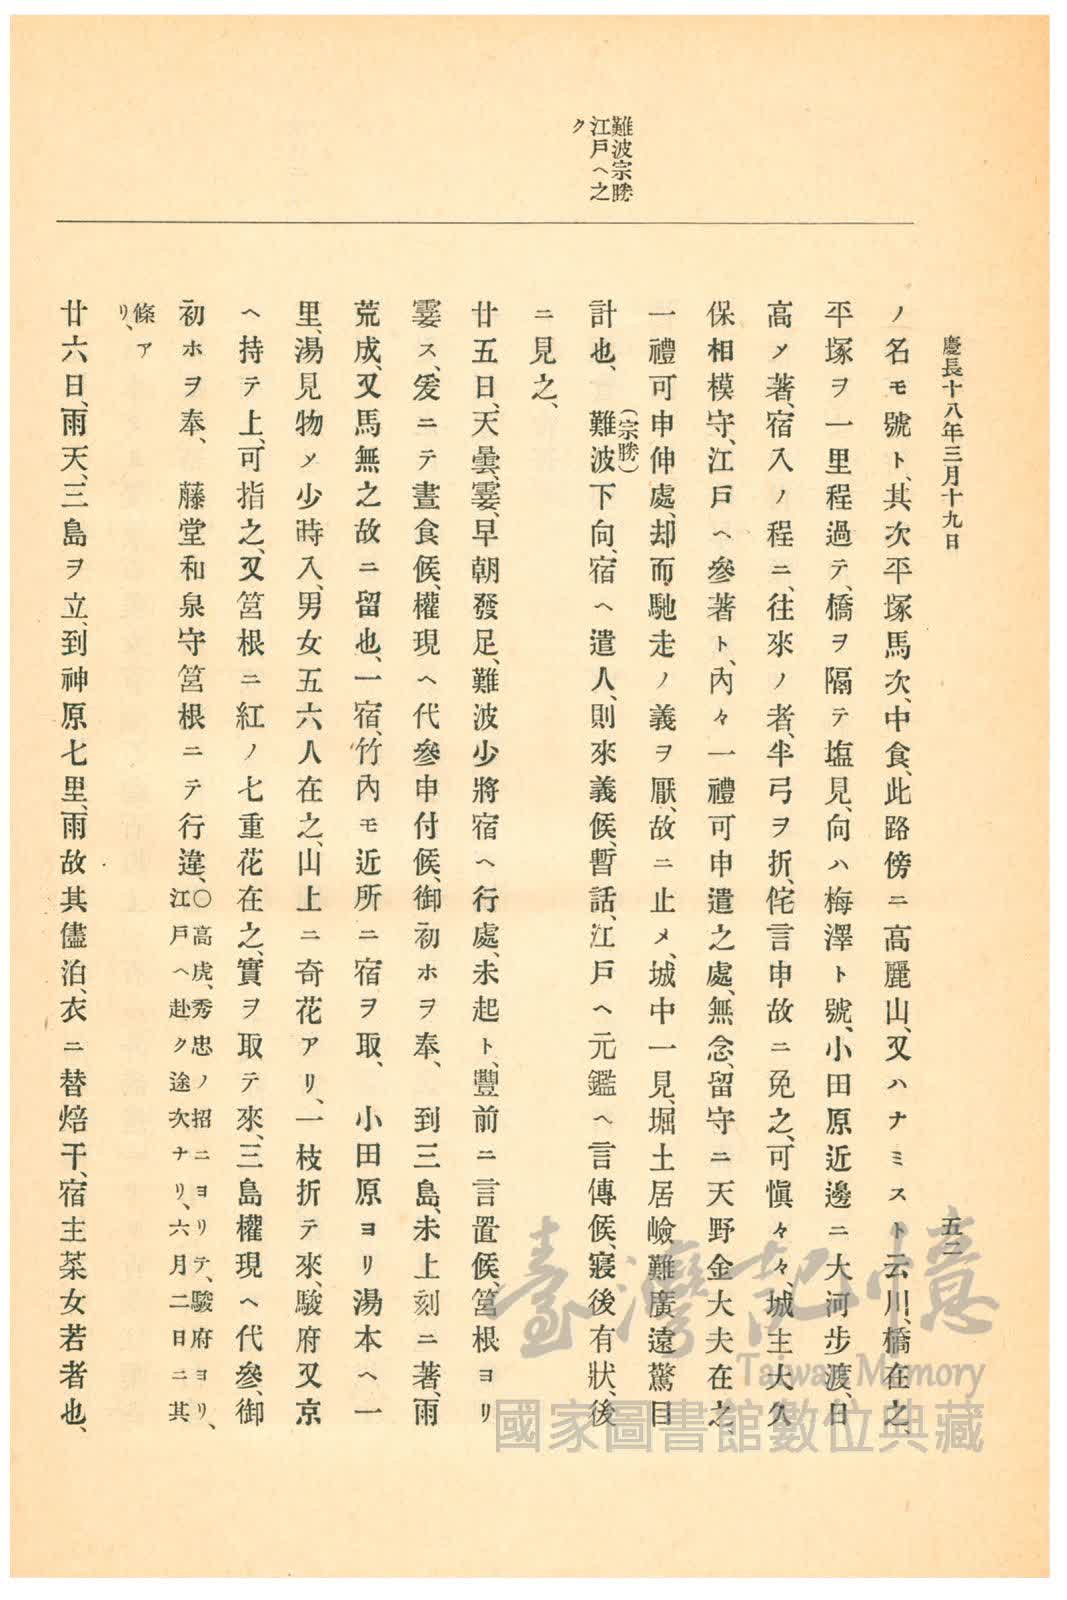 慶長十八年三月十九日
五二
難波宗勝
江戸ヘ之
ク
ノ名モ號ト、其次平塚馬次、中食、此路傍ニ高麗山、又ハナミスト云川、橋在之、
平塚ヲ一里程過テ、橋ヲ隔テ塩見、向ハ梅澤ト號、小田原近邊ニ大河歩渡、日
高メ著、宿入ノ程ニ、往來ノ者、半弓ヲ折、侘言申故ニ免之、可愼々々、城主大久
保相模守、江戸ヘ參著ト、内々一禮可申遣之處、無念、留守ニ天野金大夫在之、
一禮可申伸處、却而馳走ノ義ヲ厭、故ニ止メ、城中一見、堀土居嶮難廣遠驚目
計也、難波(宗勝)下向、宿ヘ遣人、則來義候、暫話、江戸ヘ元鑑ヘ言傳候、寢後有狀、後
ニ見之、
廿五日、天曇、霎、早朝發足、難波少將宿ヘ行處、未起ト、豐前ニ言置候、筥根ヨリ
霎ス、爰ニテ晝食候、權現ヘ代參申付候、御初ホヲ奉、到三島、未上刻ニ著、雨
荒成、又馬無之故ニ留也、一宿、竹内モ近所ニ宿ヲ取、小田原ヨリ湯本ヘ一
里、湯見物メ少時入、男女五六人在之、山上ニ奇花アリ、一枝折テ來、駿府又京
ヘ持テ上、可指之、又筥根ニ紅ノ七重花在之、實ヲ取テ來、三島權現ヘ代參、御
初ホヲ奉、藤堂和泉守筥根ニテ行違、○高虎、秀忠ノ招ニヨリテ、駿府ヨリ、
江戸ヘ赴ク途次ナリ、六月二日ニ其
條ア
リ、
廿六日、雨天、三島ヲ立、到神原七里、雨故其儘泊、衣ニ替焙干、宿主菜女若者也、
臺灣記憶
Taiwan Memory
國家圖書館數位典藏